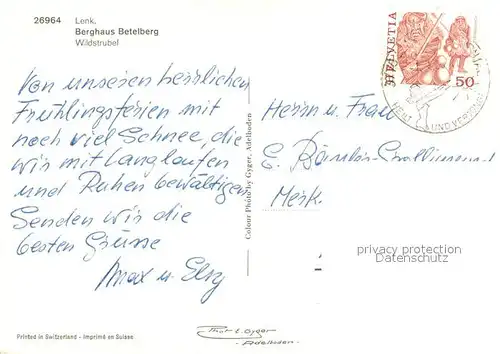 26964 Lenk.
Berghaus Betelberg
Wildstrubel
HELVETIA
50
Von unseren herrlichen
Frühlingsferien mit
noch viel Schnee, die
wir mit Langlaufen
und Ruhen bewältigen
Senden wir die
besten Grüsse
Max u. Elsy
Herrn u. Frau
E.
Colour Photo by Gyger, Adelboden
privacy protection
Datenschutz
Printed in Switzerland - Imprimé en Suisse
Phot. E. Gyger
- Adelboden -